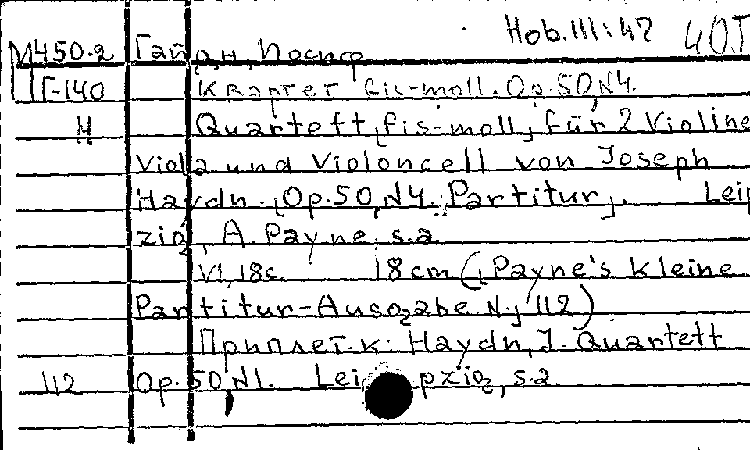 Hob.III:47 40T
М450.2 Гайдн, Иосиф
Г-140 Квартет fis-moll. Op.50,N4.
H Quartett, fis-moll, für 2 Violine
Viola und Violoncell von Joseph
Haydn. [Op.50,N4. Partitur]. Leip
zig, A. Payne, s.a.
VI, 18c. 18cm (Payne's kleine
Partitur-Ausgabe N, 112)
Приплет.к: Haydn, J. Quartett
112 Op.50,N1. Leipzig, s.a.